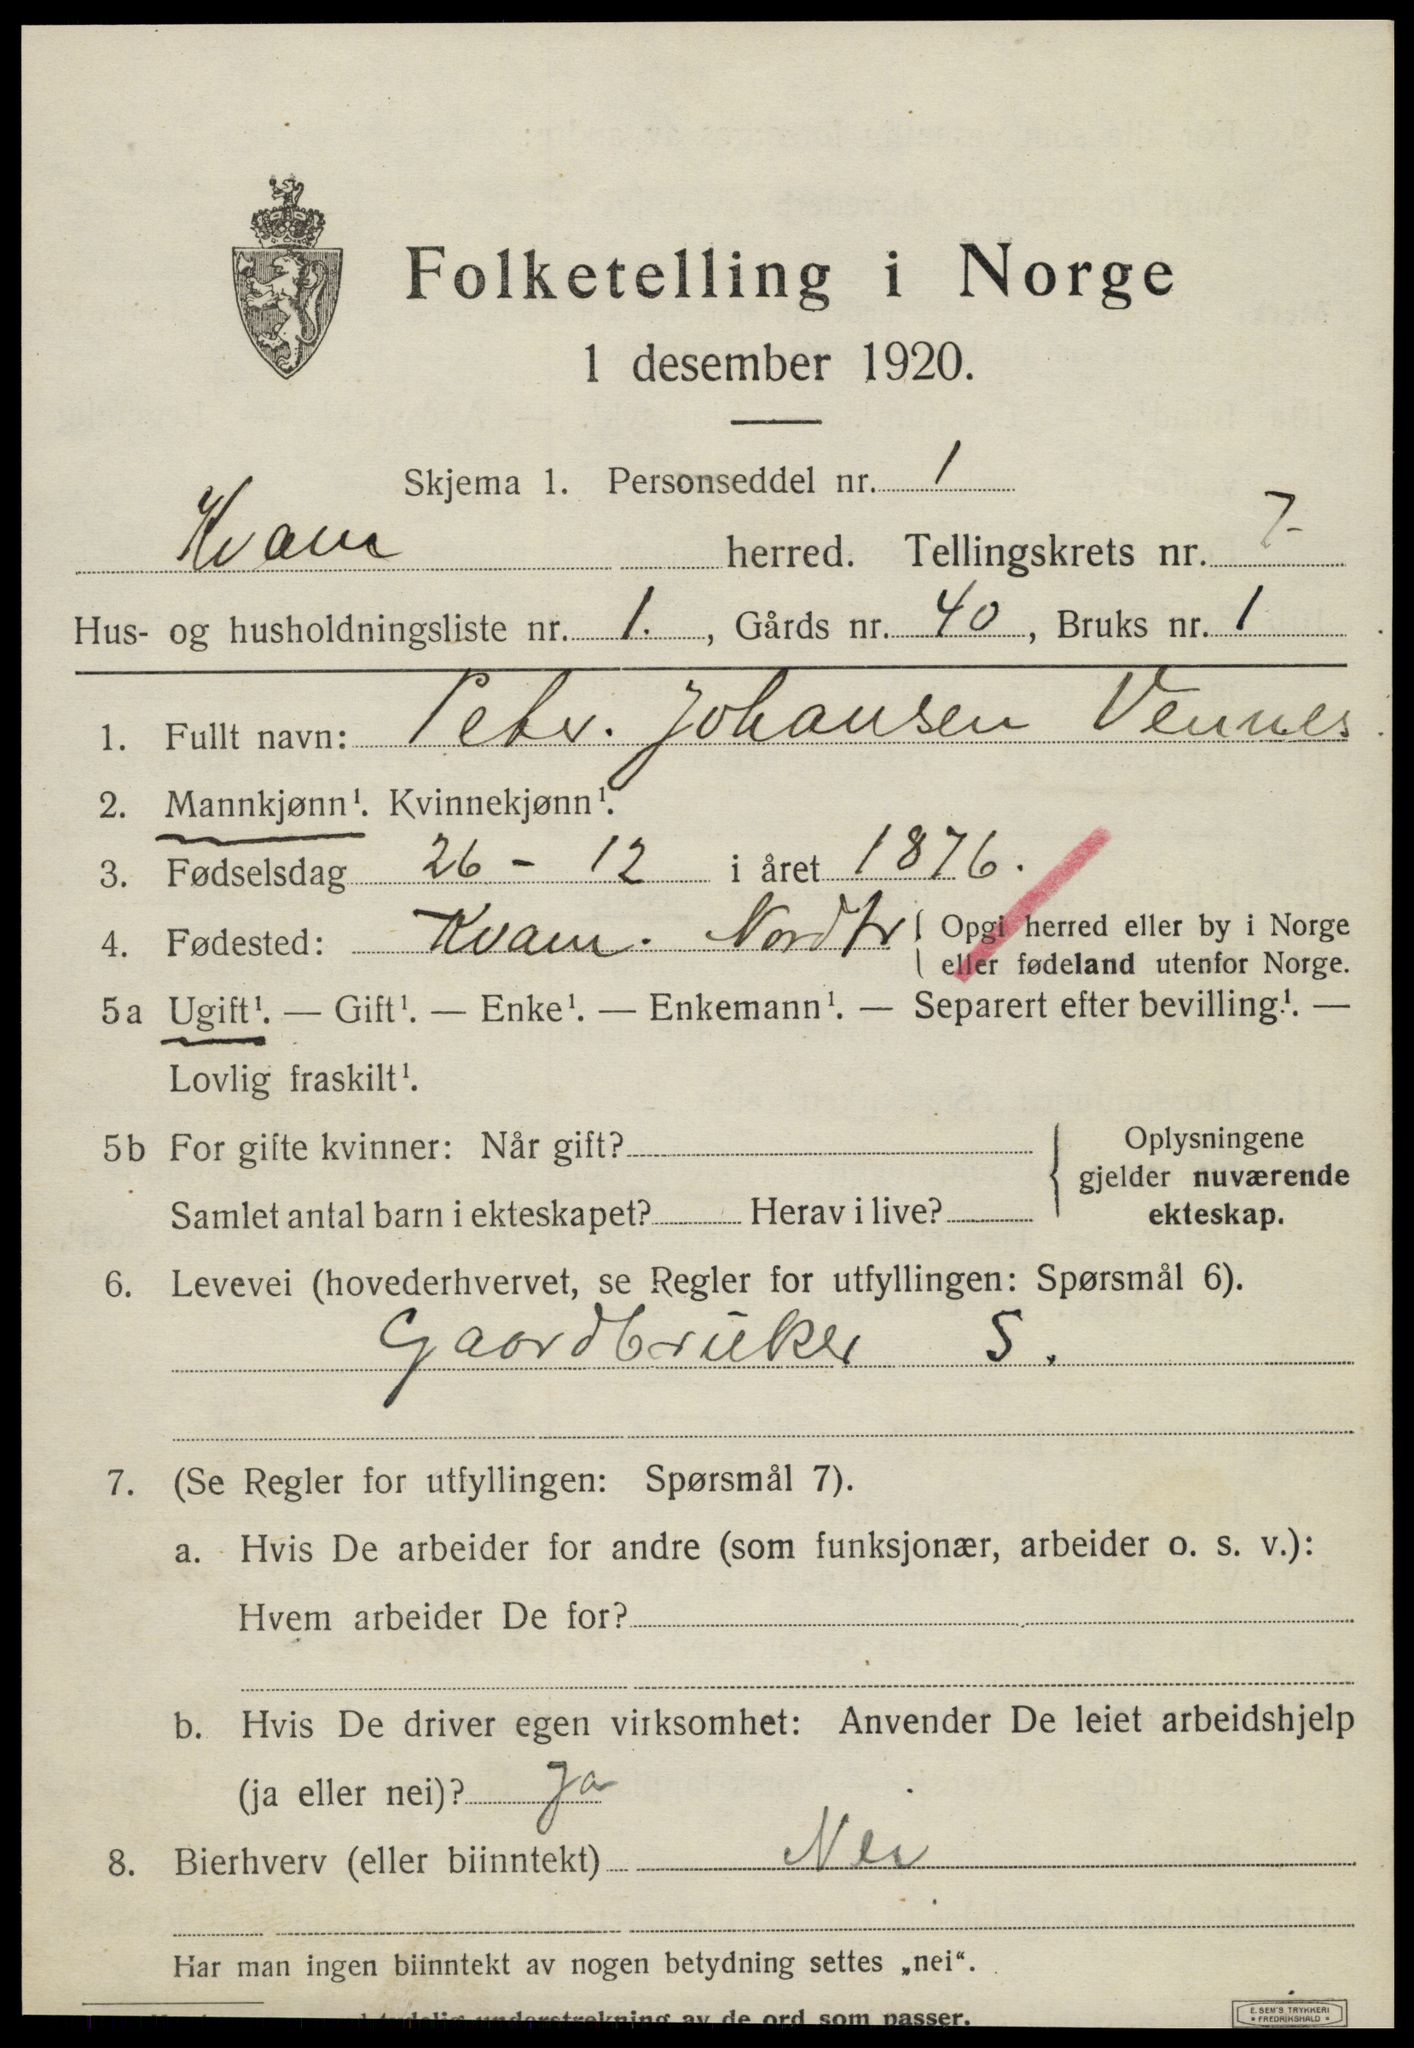 Folketelling i Norge
1 desember 1920.
Skjema 1. Personseddel nr. 1
Kvam herred. Tellingskrets nr. 7
Hus- og husholdningsliste nr. 1. , Gårds nr. 40 , Bruks nr. 1
1. Fullt navn: Peter. Johansen Vennes
2. Mannkjønn¹. Kvinnekjønn¹.
3. Fødselsdag 26 - 12 i året 1876.
4. Fødested: Kvam. Nordtr { Opgi herred eller by i Norge
eller fødeland utenfor Norge.
5a Ugift¹. — Gift¹. — Enke¹. — Enkemann¹. — Separert efter bevilling¹. —
Lovlig fraskilt¹.
5b For gifte kvinner: Når gift?
Samlet antal barn i ekteskapet? Herav i live?
Oplysningene
gjelder nuværende
ekteskap.
6. Levevei (hovederhvervet, se Regler for utfyllingen: Spørsmål 6).
Gaardbruker S.
7. (Se Regler for utfyllingen: Spørsmål 7).
a. Hvis De arbeider for andre (som funksjonær, arbeider o. s. v.):
Hvem arbeider De for?
b. Hvis De driver egen virksomhet: Anvender De leiet arbeidshjelp
(ja eller nei)? Ja
8. Bierhverv (eller biinntekt) Nei
Har man ingen biinntekt av nogen betydning settes „nei“.
understrekning av de ord som passer.
E. SEM'S TRYKKERI
* FREDRIKSHALD *